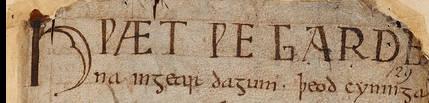 HǷÆT ǷE GARDE
na ingear dagum. þeod cyninga